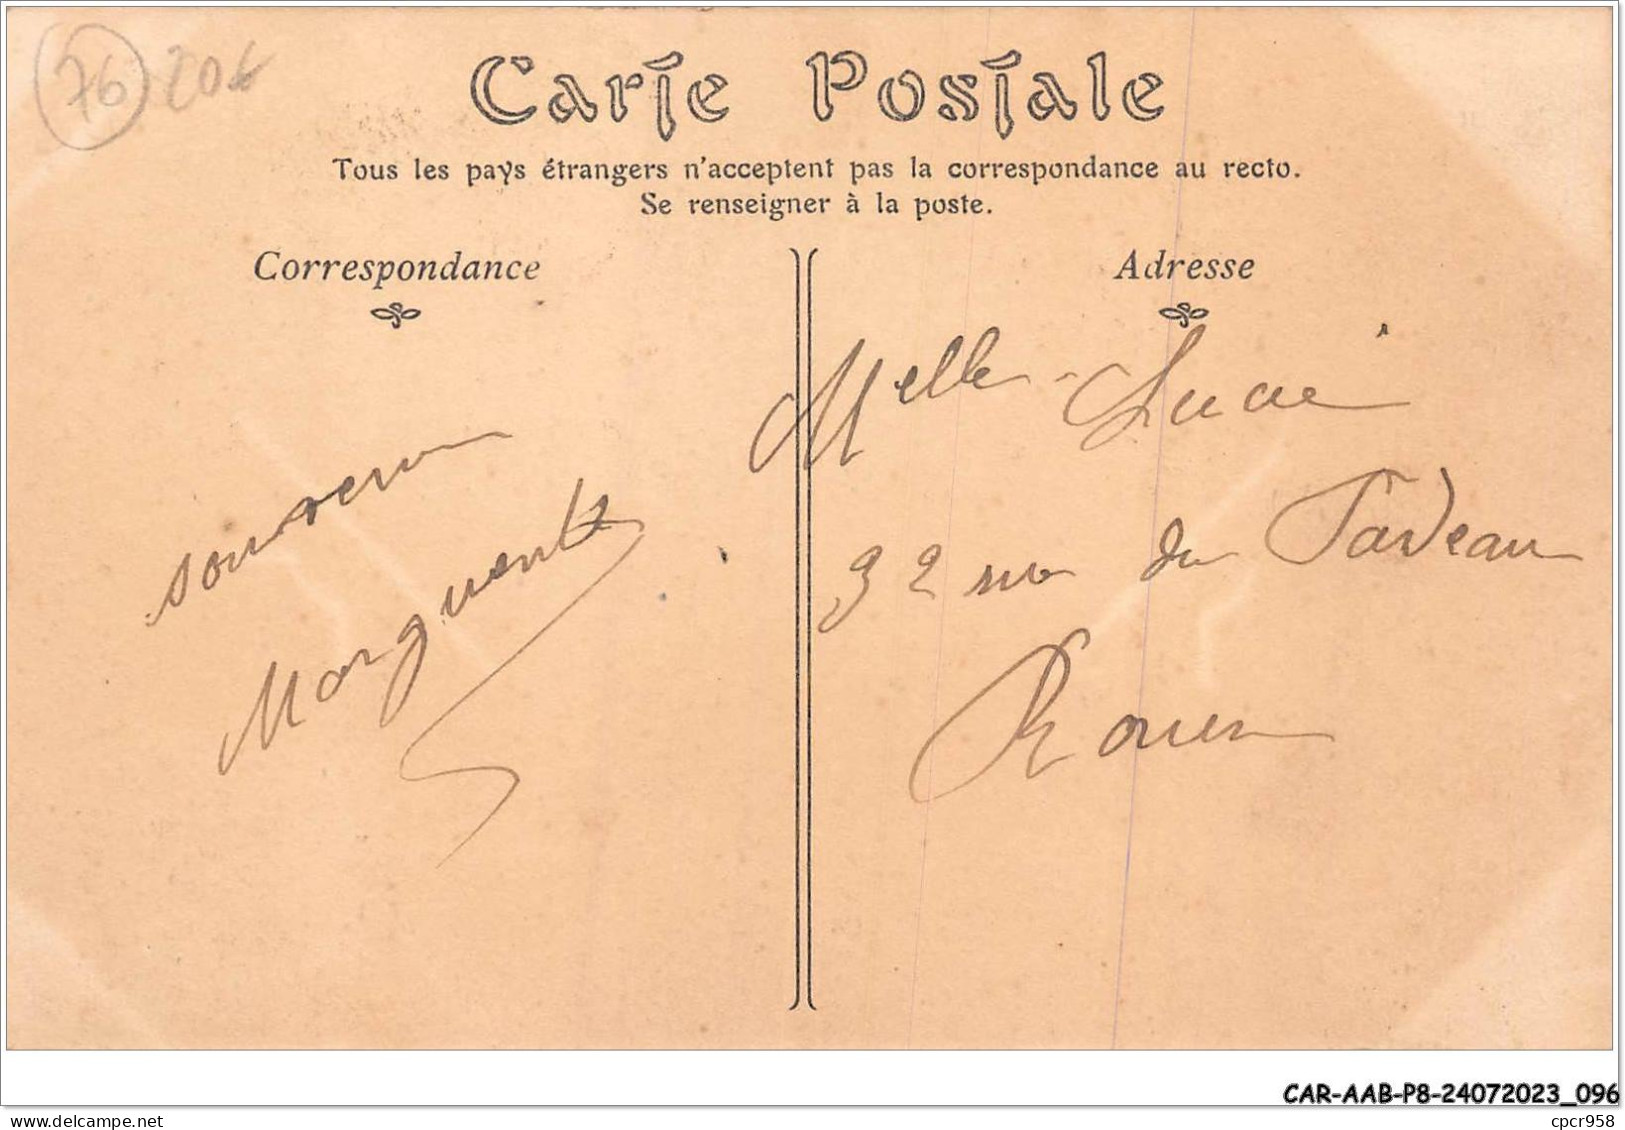 76 20€
Carte Postale
Tous les pays étrangers n'acceptent pas la correspondance au recto.
Se renseigner à la poste.
Correspondance
Adresse
souvenir
Marguerite
Melle Lucie
32 rue du
Rouen
CAR-AAB-P8-24072023_096
cpcr958